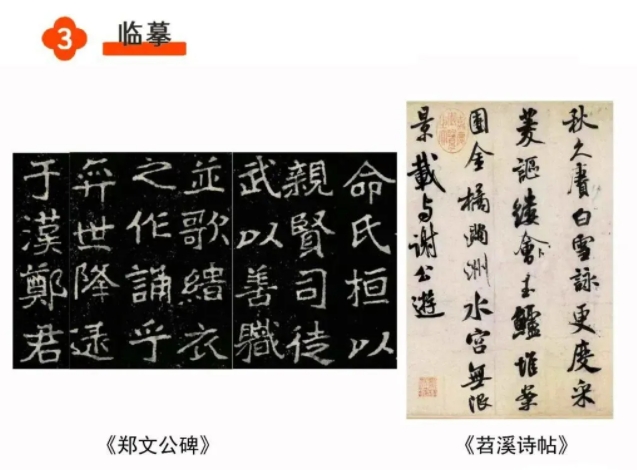 3 临摹
命氏桓以
親賢司徒
武以善職
並歌緇衣
之作誦乎
弈世降逮
于漢鄭君
秋久賡白雪詠更度采
菱謳縷會玉鱸堆案
團金橘滿洲水宮無限
景載与謝公遊
《郑文公碑》
《苕溪诗帖》